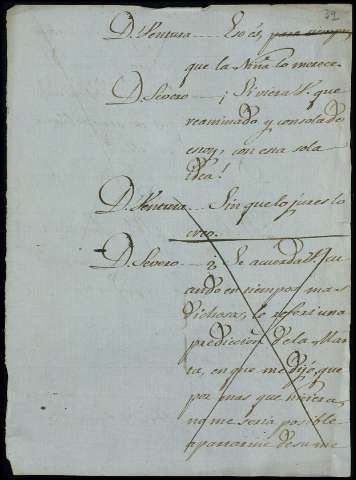 32
D. Ventura — Eso és, para siempre,
que la Niña lo merece.
D. Severo — ¡Si viera V. que
reanimado y consolado
estoy, con esta sola
idea!
D. Ventura — Sin que lo jures lo
creo.
D. Severo — ¿Se acuerda V. cu
ando en tiempos mas
dichosos, le referi una
prediccion de la Mar
ta, en que me dijo, que
por mas que hiciera,
no me seria posible
apartarme de su me